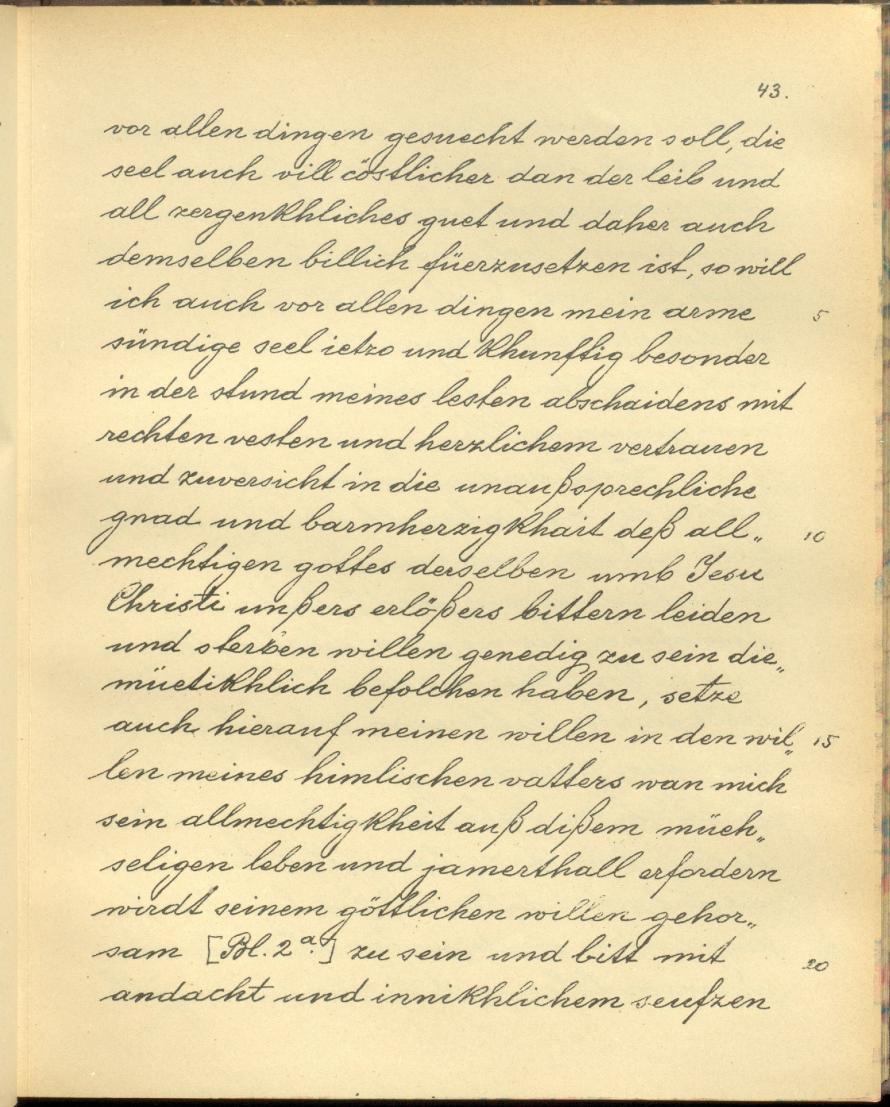 43.
vor allen dingen gesuecht werden soll, die
seel auch vill cöstlicher dan der leib und
all zergenkhliches guet und daher auch
demselben billich füerzusetzen ist, so will
ich auch vor allen dingen mein arme 5
sündige seel ietzo und khunftig besonder
in der stund meines lesten abschaidens mit
rechten vesten und herzlichem vertrauen
und zuversicht in die unaußsprechliche
gnad und barmherzigkhait deß all„ 10
mechtigen gottes derselben umb Jesu
Christi unßers erlößers bittern leiden
und sterben willen genedig zu sein die„
müetikhlich befolchen haben, setze
auch hierauf meinen willen in den wil„ 15
len meines himlischen vatters wan mich
sein allmechtigkheit auß dißem müeh„
seligen leben und jamerthall erfordern
wirdt seinem göttlichen willen gehor„
sam [Bl. 2ª.] zu sein und bitt mit 20
andacht und innikhlichem seufzen